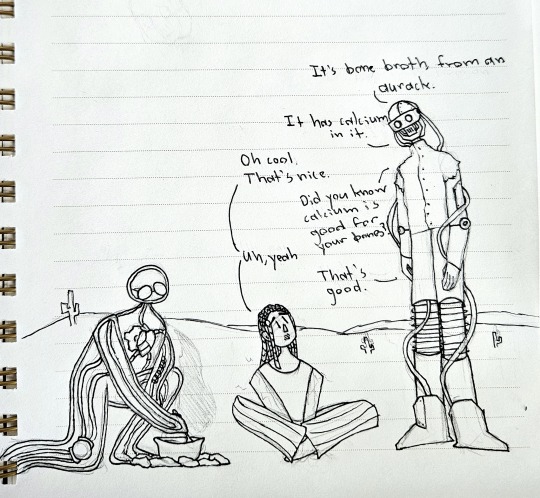 It's bone broth from an
aurack.
It has calcium
in it.
Oh cool.
That's nice.
Did you know
calcium is
good for
your bones?
Uh, yeah
That's
good.